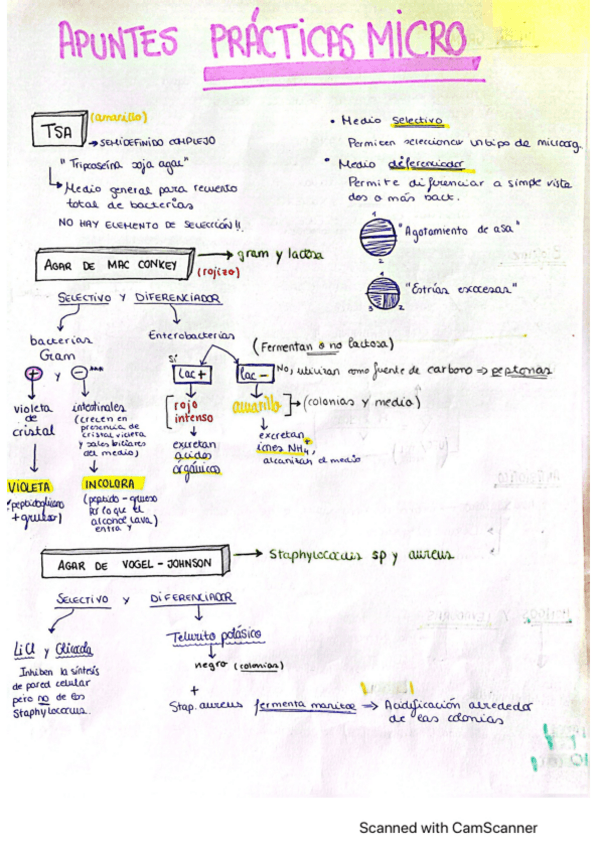 APUNTES PRÁCTICAS MICRO
TSA
(amarillo)
→ SEMIDEFINIDO COMPLEJO
"Tripcaseína soja agar"
Medio general para recuento
total de bacterias
NO HAY ELEMENTO DE SELECCIÓN!!
• Medio selectivo
Permiten seleccionar un tipo de microorg.
• Medio diferenciador
Permite diferenciar a simple vista
dos o más bact.
1
2
"Agotamiento de asa"
4
3
2
"Estrías
AGAR DE MAC CONKEY
→ gram y lactosa
(rojizo)
SELECTIVO Y DIFERENCIADOR
bacterias
Gram
+ y -
violeta
de
cristal
VIOLETA
+ grueso)
intestinales
(crecen en
presencia de
cristal violeta
y sales biliares
del medio)
INCOLORA
(peptido - grueso
por lo que el
alcohol lava)
entra y
Enterobacterias
(Fermentan o no lactosa)
sí
lac +
rojo
intenso
excretan
ácidos
orgánicos
lac -
No, utilizan como fuente de carbono ⇒ peptonas
amarillo
→ (colonias y medio)
excretan
iones NH4+,
alcalinizan el medio
AGAR DE VOGEL - JOHNSON
→ Staphylococcus sp y aureus
SELECTIVO Y DIFERENCIADOR
LiCl y Glicocola
Inhiben la síntesis
de pared celular
pero no de los
Staphylococcus.
Telurito potásico
negro (colonias)
+
Stap. aureus fermenta manitol ⇒ Acidificación alrededor
de las colonias
Scanned with CamScanner